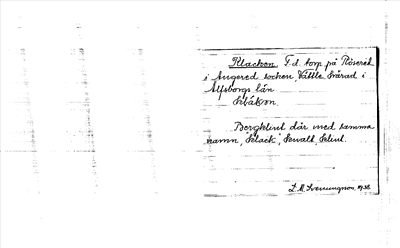 Klacken. F.d. torp på Röseröd
i Angered socken, Vättle härad i
Älfsborgs län
Klåkon.
Bergklint där med samma
namn, Klack, Kvall, Klint.
L. M. Svenungson, 1938